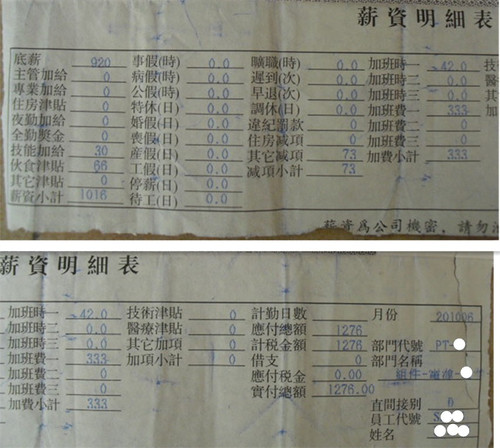 薪資明細表
底薪 920 事假(時) 0.0 曠職(時) 0.0 加班時一 42.0 技
主管加給 0 病假(時) 0.0 遲到(次) 0.0 加班時二 0.0 醫
專業加給 0 公假(時) 0.0 早退(次) 0.0 加班時三 0.0 其
住房津貼 0 特休(日) 0.0 調休(日) 0.0 加班費一 333 加
夜勤加給 0 婚假(日) 0.0 違紀罰款 0 加班費二 0
全勤獎金 0 喪假(日) 0.0 住房減項 0 加班費三 0
技能加給 30 產假(日) 0.0 其它减項 73 加費小計 333
伙食津貼 66 工假(日) 0.0 減項小計 73
其它津貼 0 停薪(日) 0.0
薪資小計 1016 待工(日) 0.0
薪資為公司機密，請勿
薪資明細表
加班時一 42.0 技術津貼 0 計勤日數 月份 201006
加班時二 0.0 醫療津貼 0 應付總額 1276
加班時三 0.0 其它加項 0 計税金額 1276 部門代號 PT-
加班費一 333 加項小計 0 借支 0 部門名稱
加班費二 0 應付税金 0.00 組件-
加班費三 0 實付總額 1276.00
加費小計 333 直間接別 D
員工代號 S
姓名